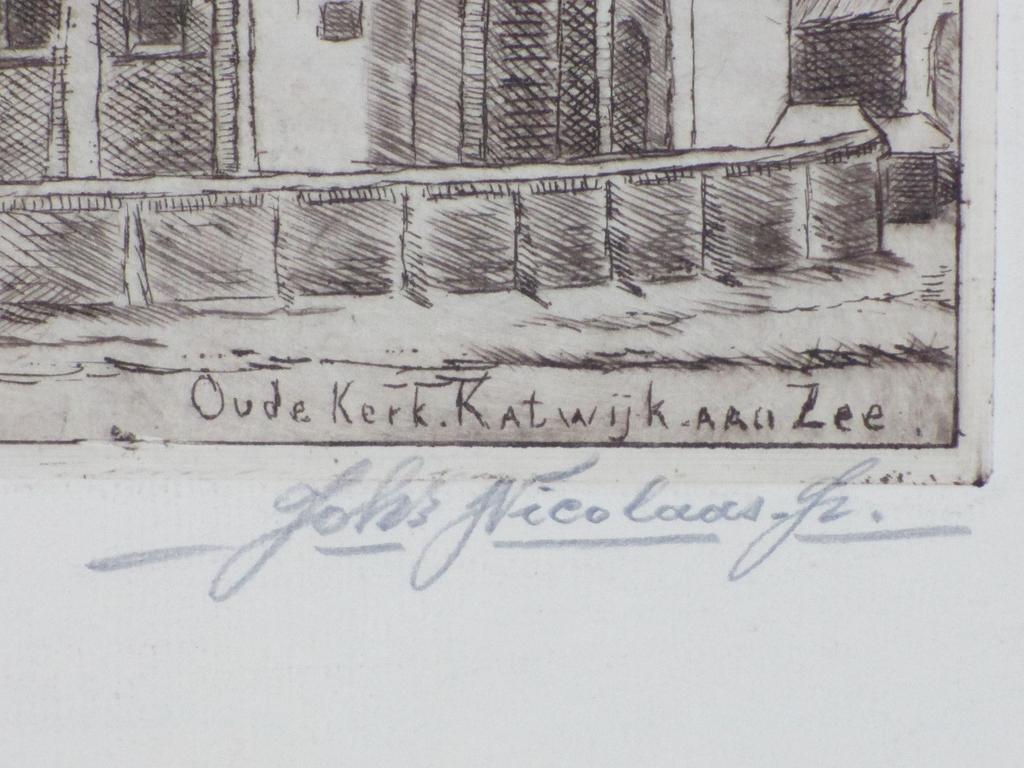 Oude Kerk. Katwijk. aan Zee.
Joh's Nicolaas. Jr.